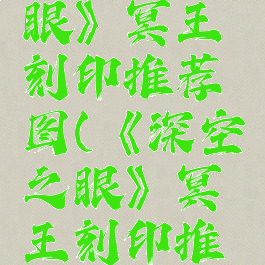 眼》冥王
刻印推荐
图(《深空
之眼》冥
王刻印推